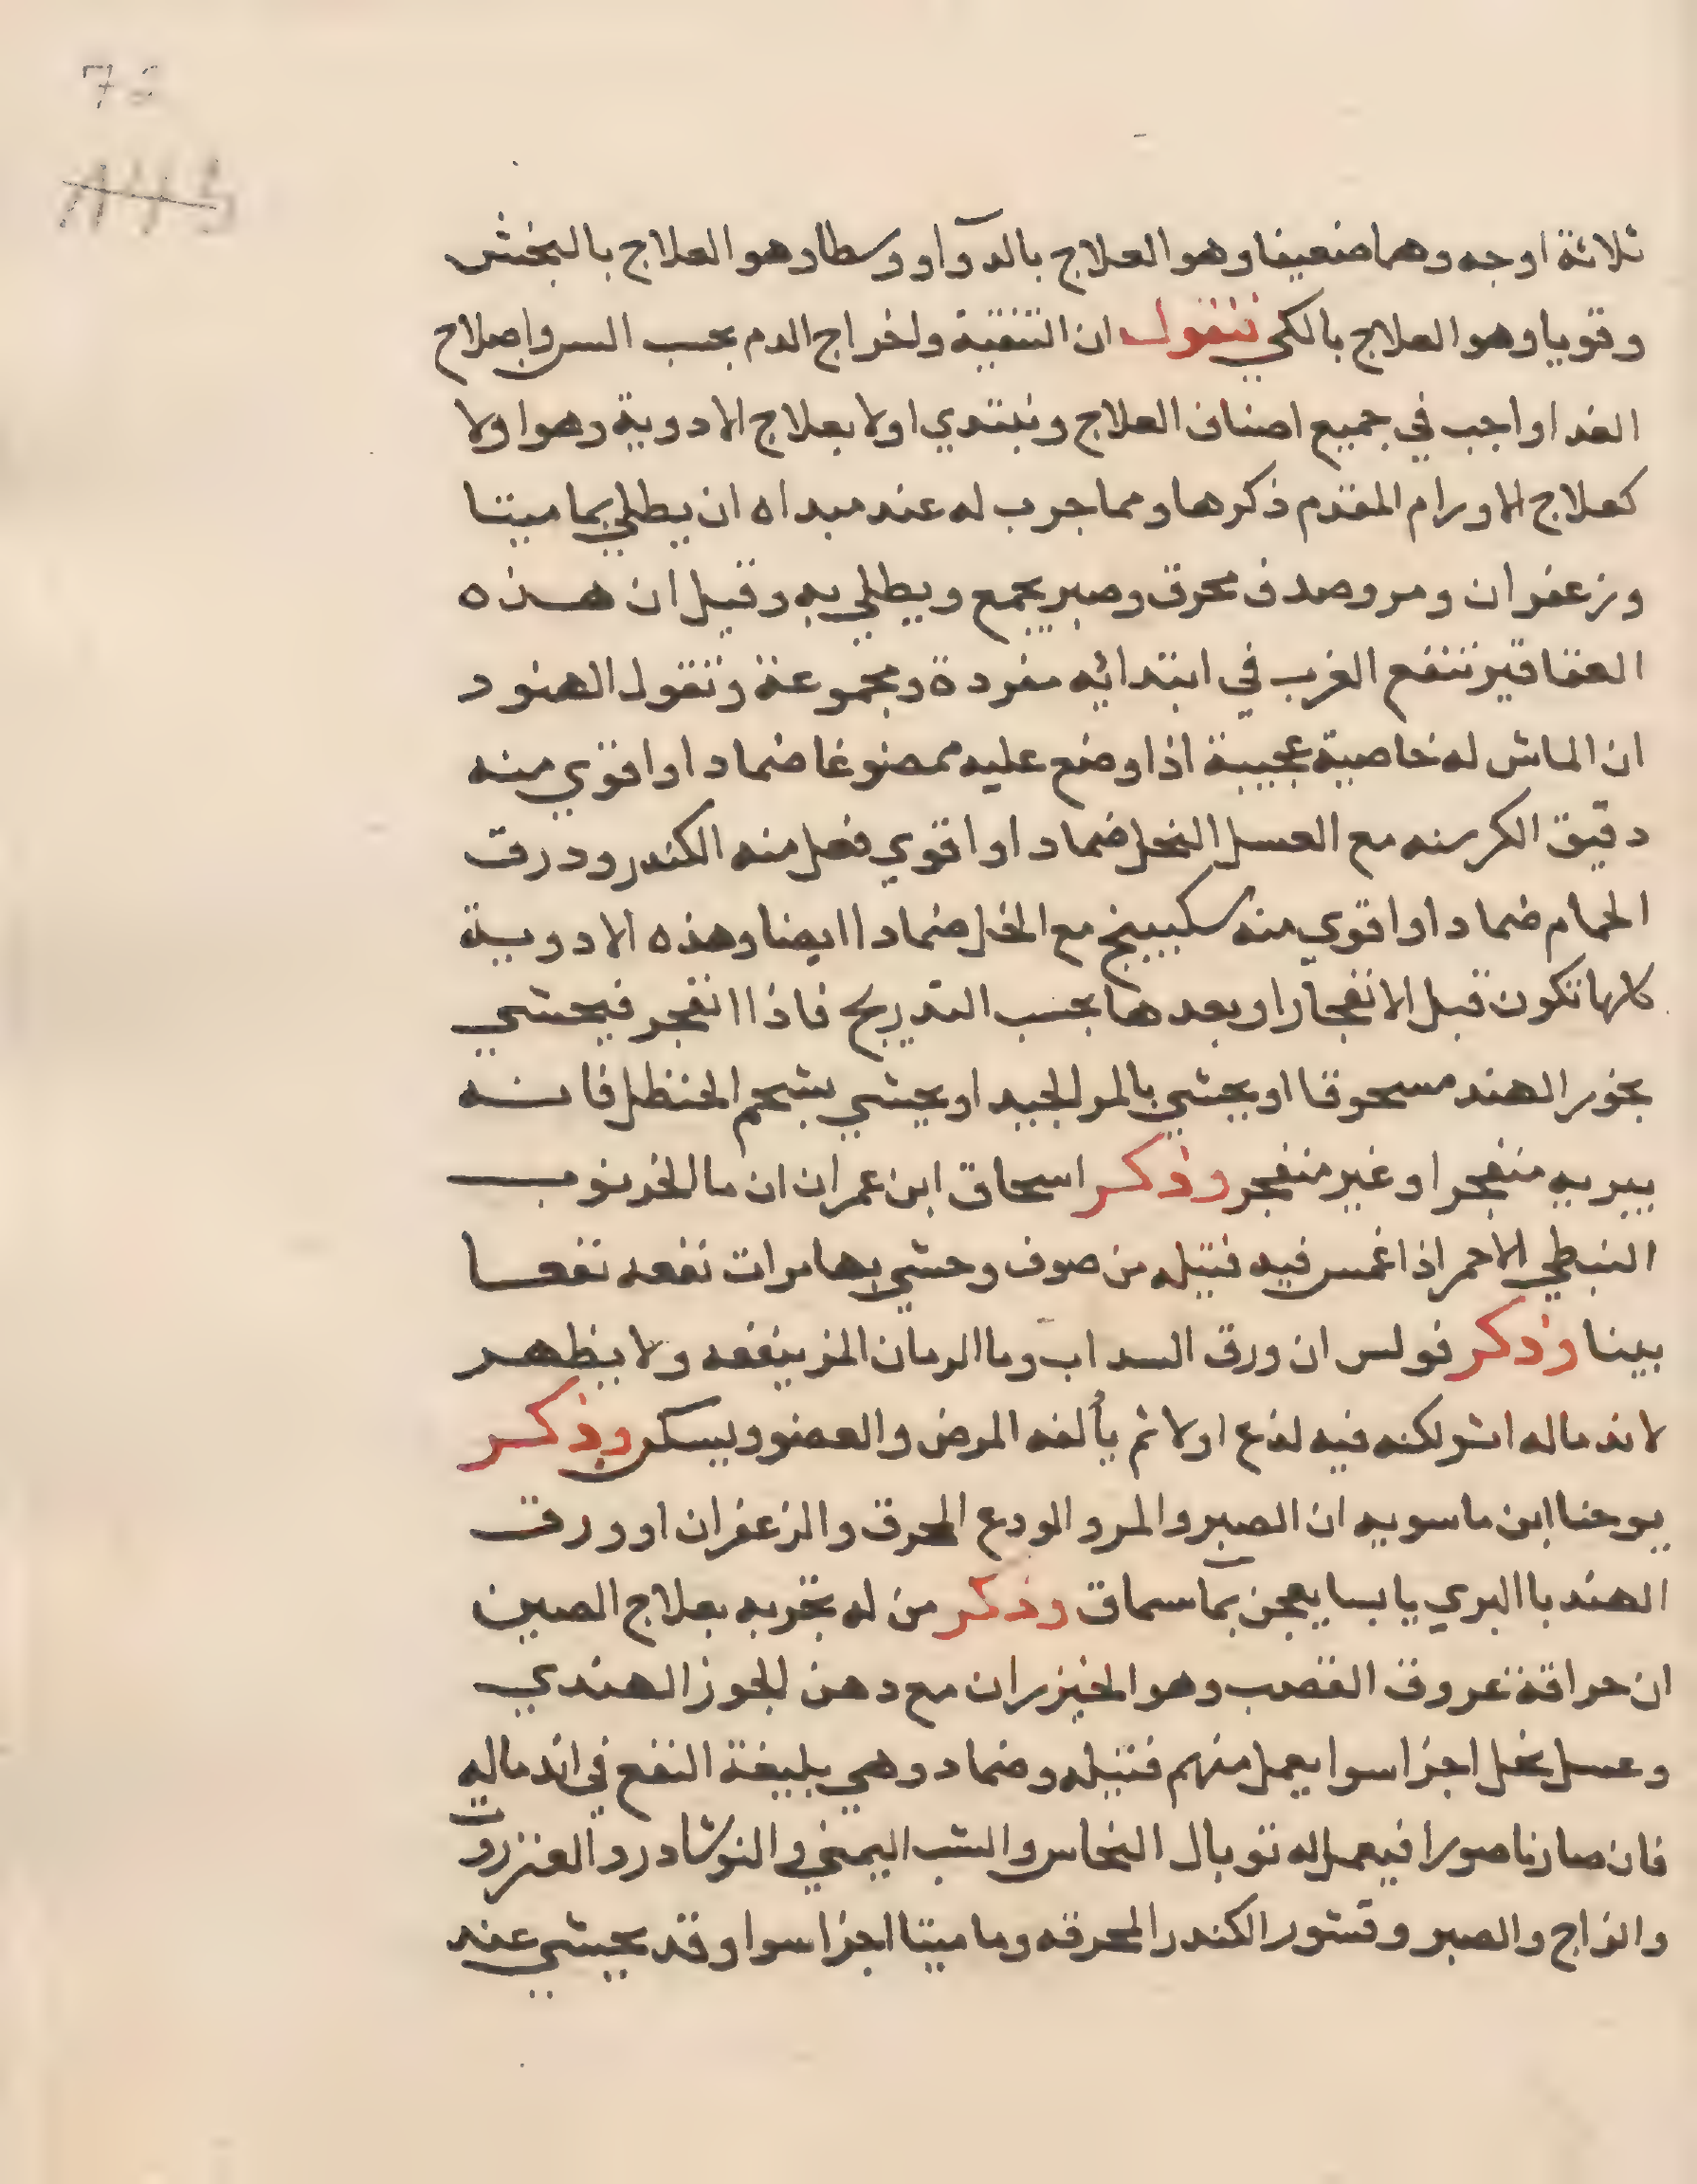 72
ثلاثة اوجه وهما ضعيفا وهو العلاج بالدوآ او وسطا وهو العلاج بالبخش
وقويا وهو العلاج بالكي فنقول ان التنقية واخراج الدم بحسب السن واصلاح
الغدا واجب في جميع اصناف العلاج ونبتدي اولا بعلاج الادوية وهو اولا
كعلاج الاورام المقدم ذكرها ومما جرب له عند مبداه ان يطلي بماميتا
وزعفران ومر وصدف محرق وصبر يجمع ويطلي به وقيل ان هذه
العقاقير تنفع الغرب في ابتدائه مفردة ومجموعة وتقول الهنود
ان الماش له خاصية عجيبة اذا وضع عليه ممضوغا ضمادا واقوي منه
دقيق الكرسنه مع العسل النحل ضمادا واقوي فعل منه الكندر ودرق
الحمام ضمادا واقوي منه سكبينج مع الخل ضمادا ايضا وهذه الادوية
كلها تكون قبل الانفجار او بعدها بحسب التدريج فاذا انفجر فيحشي
بخور الهند مسحوقا او يحشي بالمر الجيد او يحشي بشحم الحنظل فانه
يبريه منفجرا وغير منفجر وذكر اسحاق ابن عمران ان ما الخرنوب
النبطي الاحمر اذا غمس فيه فتيله من صوف وحشي بها مرات نفعه نفعا
بينا وذكر فولس ان ورق السداب وما الرمان المز ينفعه ولا يظهر
لاندماله اثر لكنه فيه لذع اولا ثم يألفه المرض والعضو ويسكن وذكر
يوحنا ابن ماسويه ان الصبر والمر والودع المحرق والزعفران او ورق
الهندبا البري يابسا يعجن بمآ سماق وذكر من له تجربه بعلاج الصين
ان حراقة عروق القصب وهو الخيزران مع دهن الجوز الهندي
وعسل نحل اجزا سوا يعمل منهم فتيله وضماد وهي بليغة النفع في اندماله
فان صار ناصورا فيعمل له توبال النحاس والشب اليمني والنوشادر والعنزروت
والزاج والصبر وقشور الكندر المحرقه وماميتا اجزا سوا وقد يحشي عند